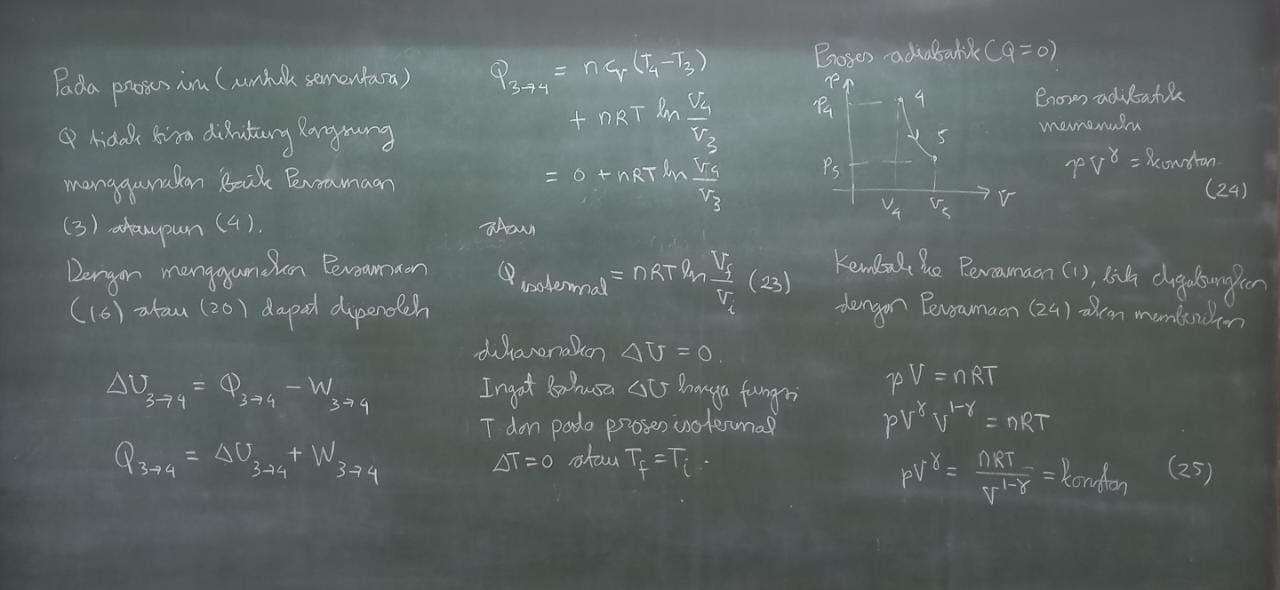 Pada proses ini (untuk sementara)
Q tidak bisa dihitung langsung
menggunakan baik Persamaan
(3) ataupun (4).
Dengan menggunakan Persamaan
(16) atau (20) dapat diperoleh
ΔU₃→₄ = Q₃→₄ − W₃→₄
Q₃→₄ = ΔU₃→₄ + W₃→₄
Q₃→₄ = n c_v (T₄−T₃)
+ nRT ln V₄/V₃
= 0 + nRT ln V₄/V₃
atau
Q_isotermal = nRT ln V_f/V_i (23)
dikarenakan ΔU = 0.
Ingat bahwa ΔU hanya fungsi
T dan pada proses isotermal
ΔT=0 atau T_f = T_i.
Proses adiabatik (Q=0)
P
P₄
4
5
P₅
V₄
V₅
V
Proses adibatik
memenuhi
pV^γ = konstan
(24)
Kembali ke Persamaan (1), bila digabungkan
dengan Persamaan (24) akan memberikan
pV = nRT
pV^γ V^1-γ = nRT
pV^γ = nRT/V^1-γ = konstan (25)